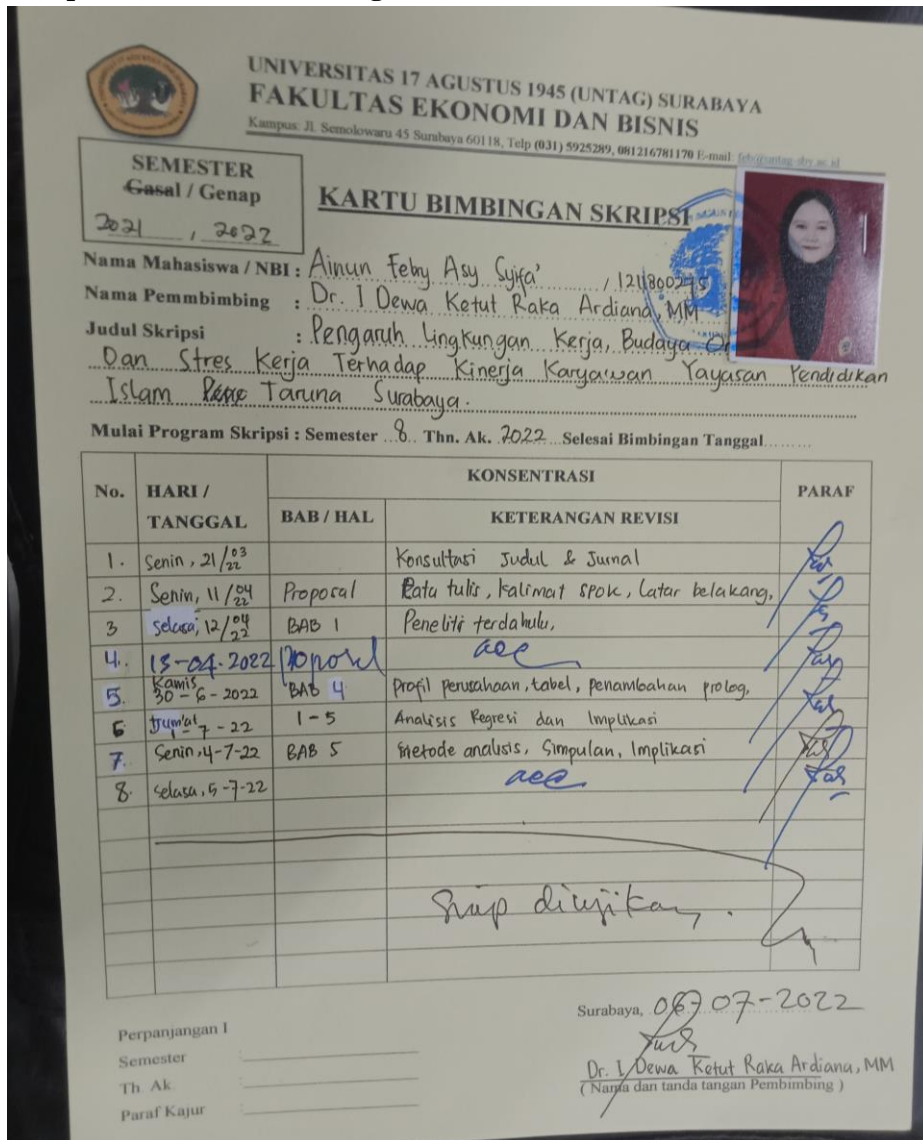 UNIVERSITAS 17 AGUSTUS 1945 (UNTAG) SURABAYA
FAKULTAS EKONOMI DAN BISNIS
Kampus: Jl. Semolowaru 45 Surabaya 60118, Telp (031) 5925289, 081216781170 E-mail: feb@untag-sby.ac.id
SEMESTER
Gasal / Genap
2021 , 2022
KARTU BIMBINGAN SKRIPSI
Nama Mahasiswa / NBI : Ainun Feby Asy Syifa' ,
Nama Pemmbimbing : Dr. I Dewa Ketut Raka Ardiana, MM
Judul Skripsi : Pengaruh Lingkungan Kerja, Budaya
Dan Stres Kerja Terhadap Kinerja Karyawan Yayasan Pendidikan
Islam Taruna Surabaya.
Mulai Program Skripsi : Semester 8 Thn. Ak. 2022 Selesai Bimbingan Tanggal.........
No. HARI / TANGGAL KONSENTRASI PARAF
BAB / HAL KETERANGAN REVISI
1. Senin, 21/03/22 Konsultasi Judul & Jurnal
2. Senin, 11/04/22 Proposal Rata tulis, kalimat SPOK, Latar belakang,
3 Selasa, 12/04/22 BAB 1 Peneliti terdahulu,
4. 13-04-2022 Proposal acc
5. Kamis 30-6-2022 BAB 4 Profil perusahaan, tabel, penambahan prolog,
6 Jum'at 1-7-22 1-5 Analisis Regresi dan Implikasi
7. Senin, 4-7-22 BAB 5 metode analisis, Simpulan, Implikasi
8. Selasa, 5-7-22 acc
Siap diujikan.
Surabaya, 07-2022
Dr. I Dewa Ketut Raka Ardiana, MM
( Nama dan tanda tangan Pembimbing )
Perpanjangan I
Semester :
Th. Ak :
Paraf Kajur :